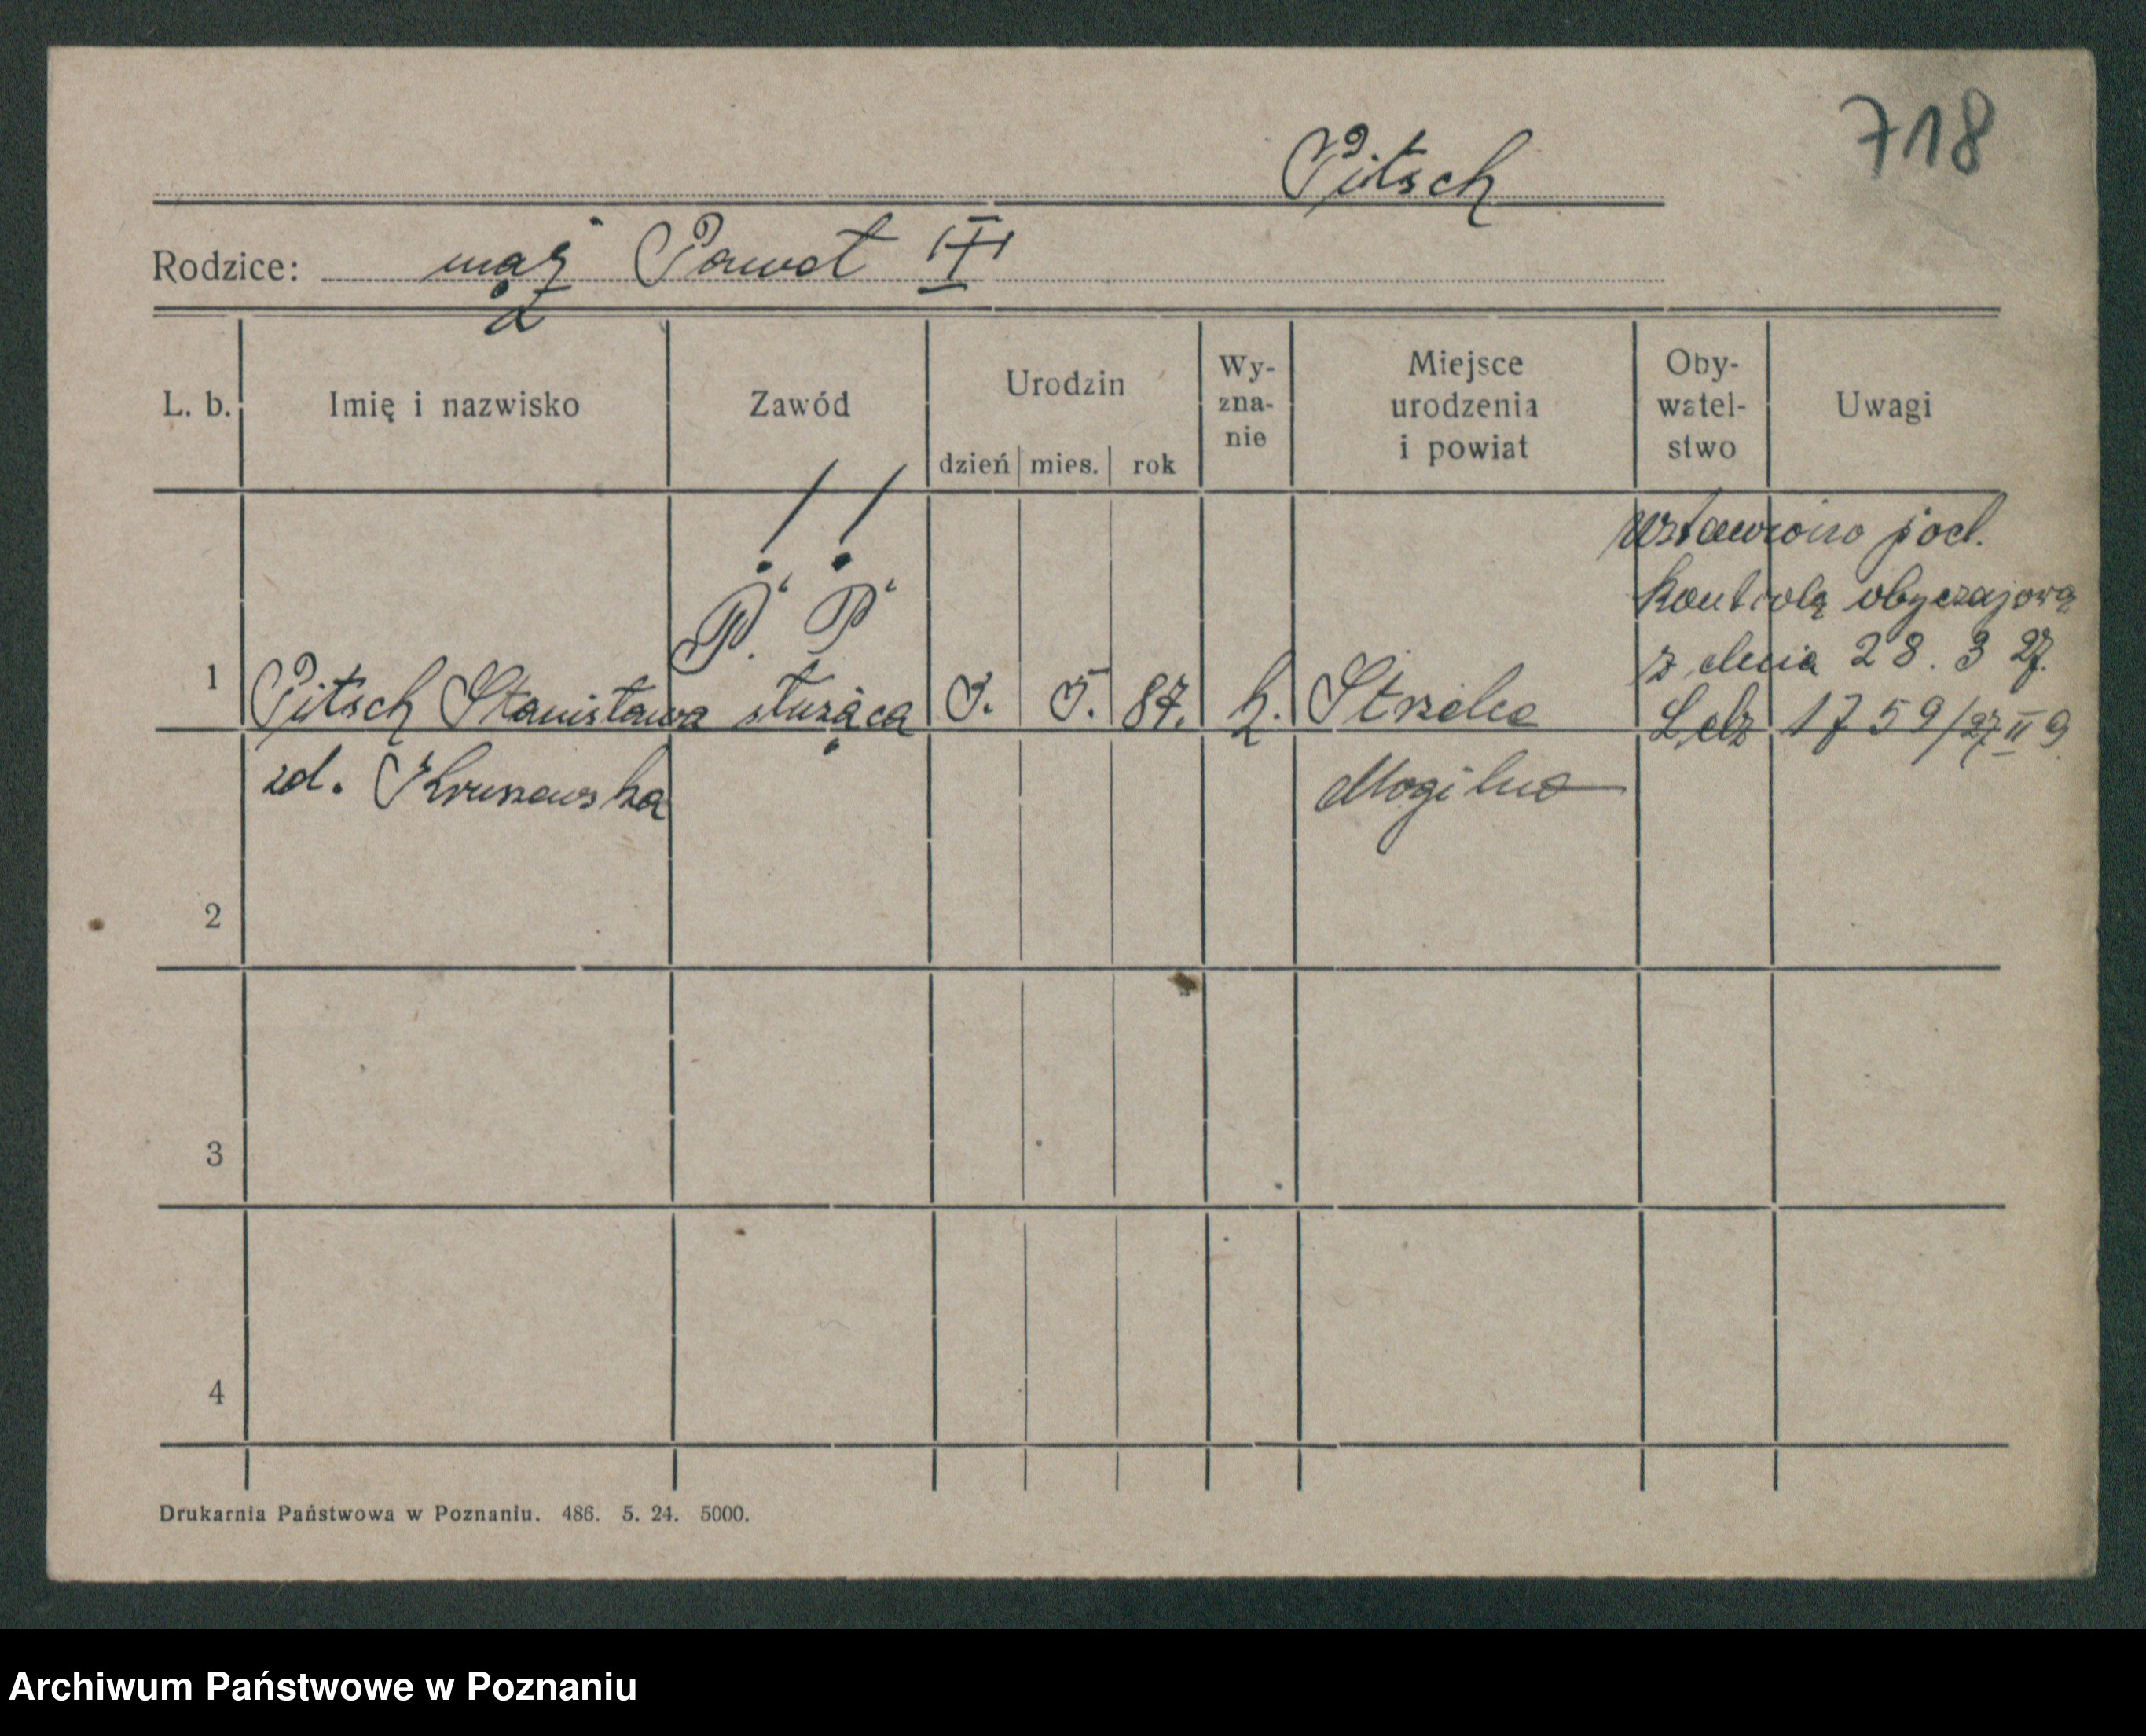 718
Pitsch
Rodzice: mąż Paweł III
ż
L. b. Imię i nazwisko Zawód Urodzin dzień mies. rok Wy-zna-nie Miejsce urodzenia i powiat Oby-watel-stwo Uwagi
! !
P. P.
1 Pitsch Stanisława służąca 5. 5. 87. k. Strzelce
zd. Kruszewska Mogilno
wstawiono pod.
kontrolą obyczajową
z dnia 28. 3 27.
L. dz 1759/27 II 9
2
3
4
Drukarnia Państwowa w Poznaniu. 486. 5. 24. 5000.
Archiwum Państwowe w Poznaniu